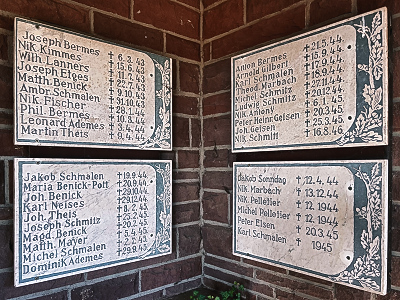 Joseph Bermes † 6.3.43
Nik. Kimmes † 15.6.43
Wilh. Lanners † 11.7.43
Joseph Elges † 22.7.43
Matth. Benick † 9.10.43
Ambr. Schmalen † 31.10.43
Nik. Fischer † 28.1.44
Phil. Bermes † 10.3.44
Leonard Ademes † 3.4.44
Martin Theis † 9.4.44
Anton Bermes † 21.5.44.
Arnold Gilberl † 15.9.44.
Karl Schmalen † 17.9.44.
Theod. Marbach † 18.9.44.
Michel Schmitz † 27.11.44.
Ludwig Schmitz † 20.12.44.
Nik. Ameny † 6.1.45.
Peter Heinr. Geisen † 20.3.45.
Joh. Geisen † 25.3.45.
Nik. Schmitt † 16.8.46.
Jakob Schmalen † 19.9.44.
Maria Benick-Pott † 20.9.44.
Joh. Benick
Karl Neises † 29.12.44.
Joh. Theis † 8.2.45.
Joseph Schmitz † 23.2.45.
Magd. Benick † 20.2.45.
Matth. Mayer † 5.4.45.
Michel Schmalen † 2.2.45.
Dominik Ademes † 29.9.45.
Jakob Sonndag † 12.4.44
Nik. Marbach † 13.12.44
Nik. Pelletier † 12.1944
Michel Pelletier † 12.1944
Peter Elsen † 20.3.45
Karl Schmalen † 1945